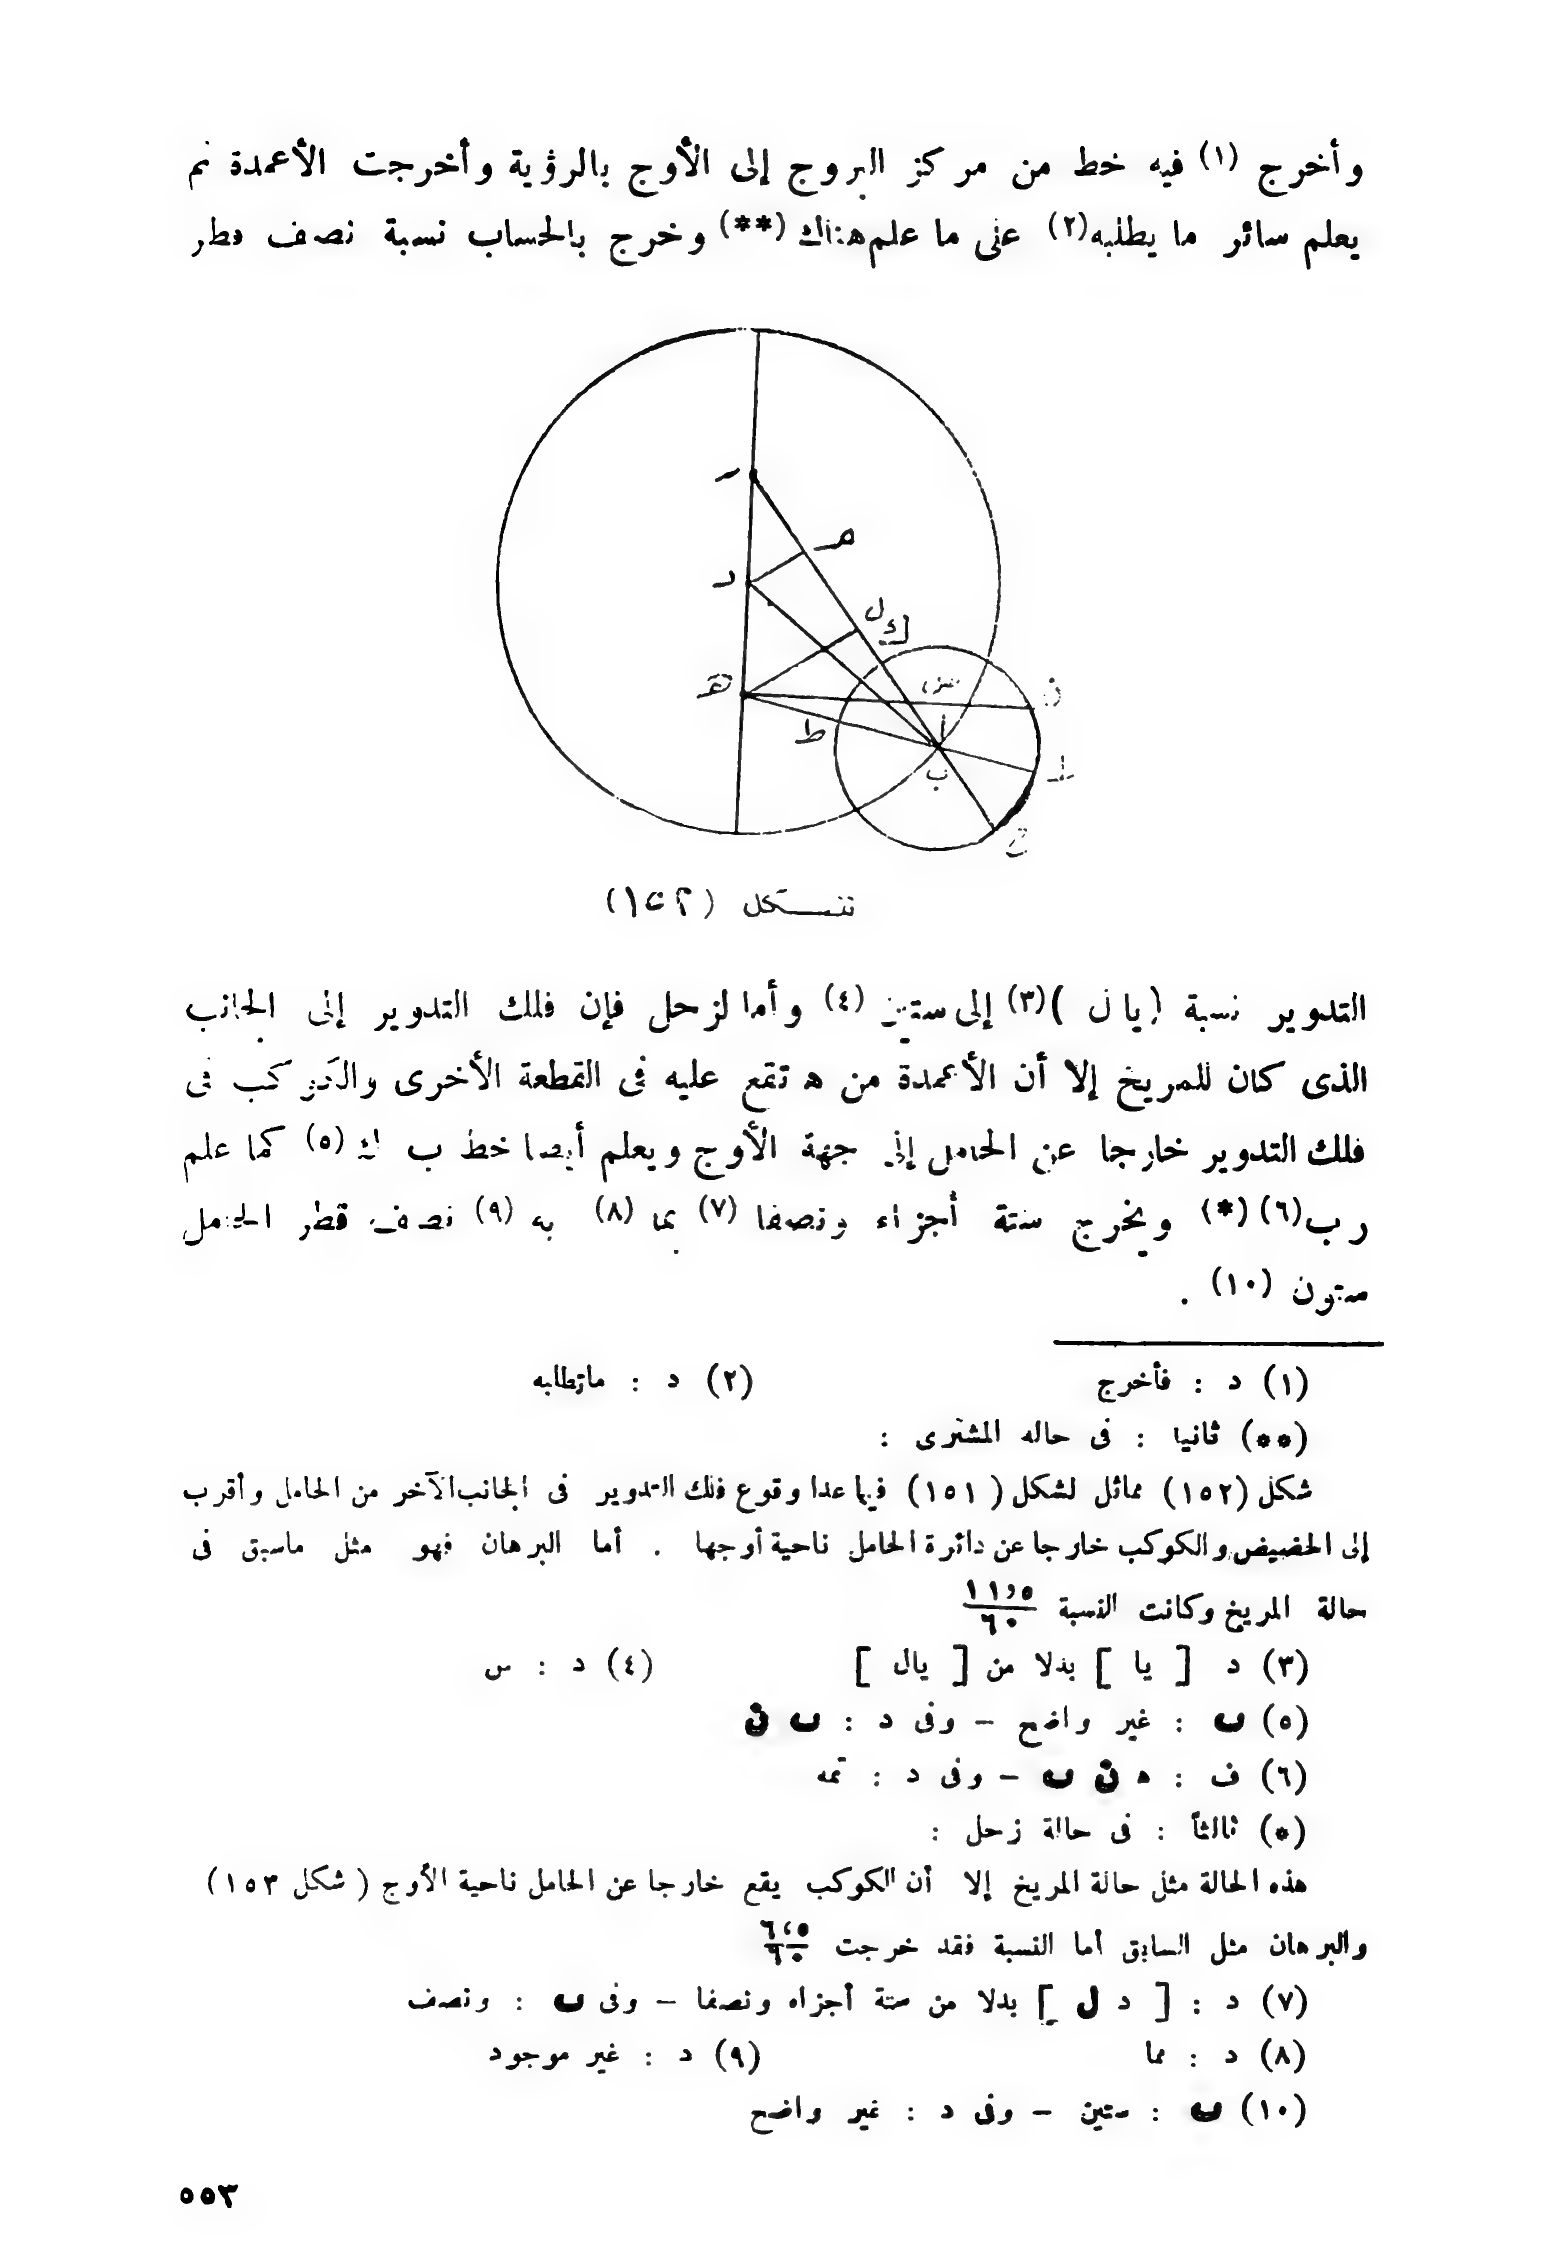 وأخرج (١) فيه خط من مركز البروج إلى الأوج بالرؤية وأخرجت الأعمدة ثم
يعلم سائر ما يطلبه(٢) على ما علم هناك (**) وخرج بالحساب نسبة نصف قطر
ر
م
د
ل
ك
ه
س
ن
ا
ط
ب
ط
ح
شكل (١٥٢)
التدوير نسبة (يا ل )(٣) إلى ستين (٤) وأما لزحل فإن فلك التدوير إلى الجانب
الذى كان للمريخ إلا أن الأعمدة من ه تقع عليه فى القطعة الأخرى والكوكب فى
فلك التدوير خارجا عن الحامل إلى جهة الأوج ويعلم أيضا خط ب ك (٥) كما علم
ر ب(٦) (*) ويخرج ستة أجزاء ونصفا (٧) بما (٨) به (٩) نصف قطر الحامل
ستون (١٠) .
(١) د : فأخرج (٢) د : ماتطلبه
(**) ثانيا : فى حاله المشترى :
شكل (١٥٢) مماثل لشكل (١٥١) فيما عدا وقوع فلك التدوير فى الجانب الآخر من الحامل وأقرب
إلى الحضيض والكوكب خارجا عن دائرة الحامل ناحية أوجها . أما البرهان فهو مثل ماسبق فى
حالة المريخ وكانت النسبة ١١,٥ / ٦٠
(٣) د [ يا ] بدلا من [ يال ] (٤) د : س
(٥) ب : غير واضح – وفى د : ب ن
(٦) ف : ه ن ب – وفى د : تمه
(*) ثالثاً : فى حالة زحل :
هذه الحالة مثل حالة المريخ إلا أن الكوكب يقع خارجا عن الحامل ناحية الأوج ( شكل ١٥٣)
والبرهان مثل السابق أما النسبة فقد خرجت ٦,٥ / ٦٠
(٧) د : [ د ل ] بدلا من ستة أجزاء ونصفا – وفى ب : ونصف
(٨) د : مما (٩) د : غير موجود
(١٠) ب : ستين – وفى د : غير واضح
٥٥٣